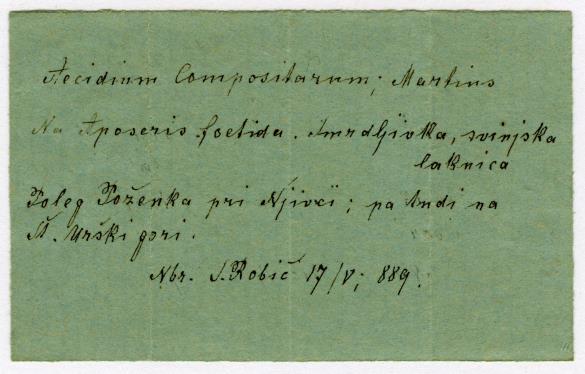 Aecidium Compositarum; Martius
Na Aposeris foetida. Smrdljivka, svinjska
laknica
Poleg Poženka pri Njivči; pa tudi na
Št. Urški gori.
Nbr. S. Robič 17/V; 889.